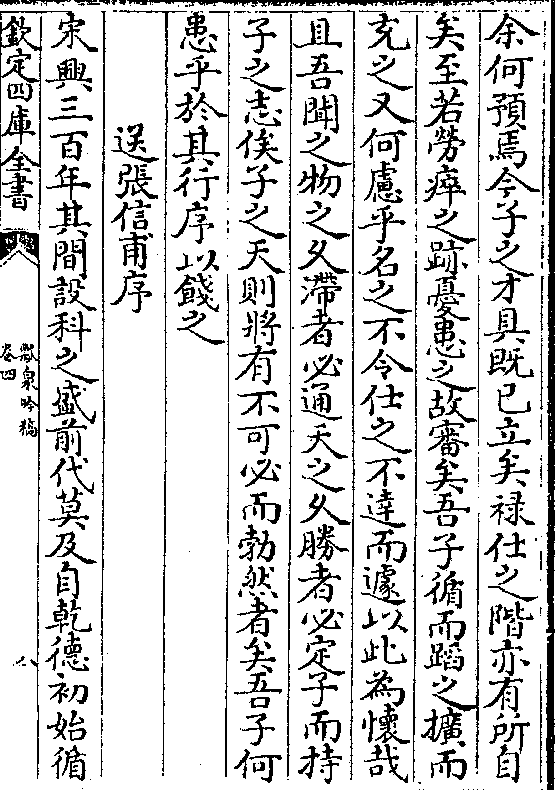 余何預焉今子之才具既已立矣禄仕之階亦有所自
矣至若勞瘁之跡憂患之故審矣吾子循而蹈之擴而
充之又何慮乎名之不令仕之不達而遽以此為懷哉
且吾聞之物之久滯者必通天之久勝者必定子而持
子之志俟子之天則將有不可必而勃然者矣吾子何
患乎於其行序以餞之
送張信甫序
宋興三百年其間設科之盛前代莫及自乾德初始循
欽定四庫全書
瓢泉吟稿
卷四
八